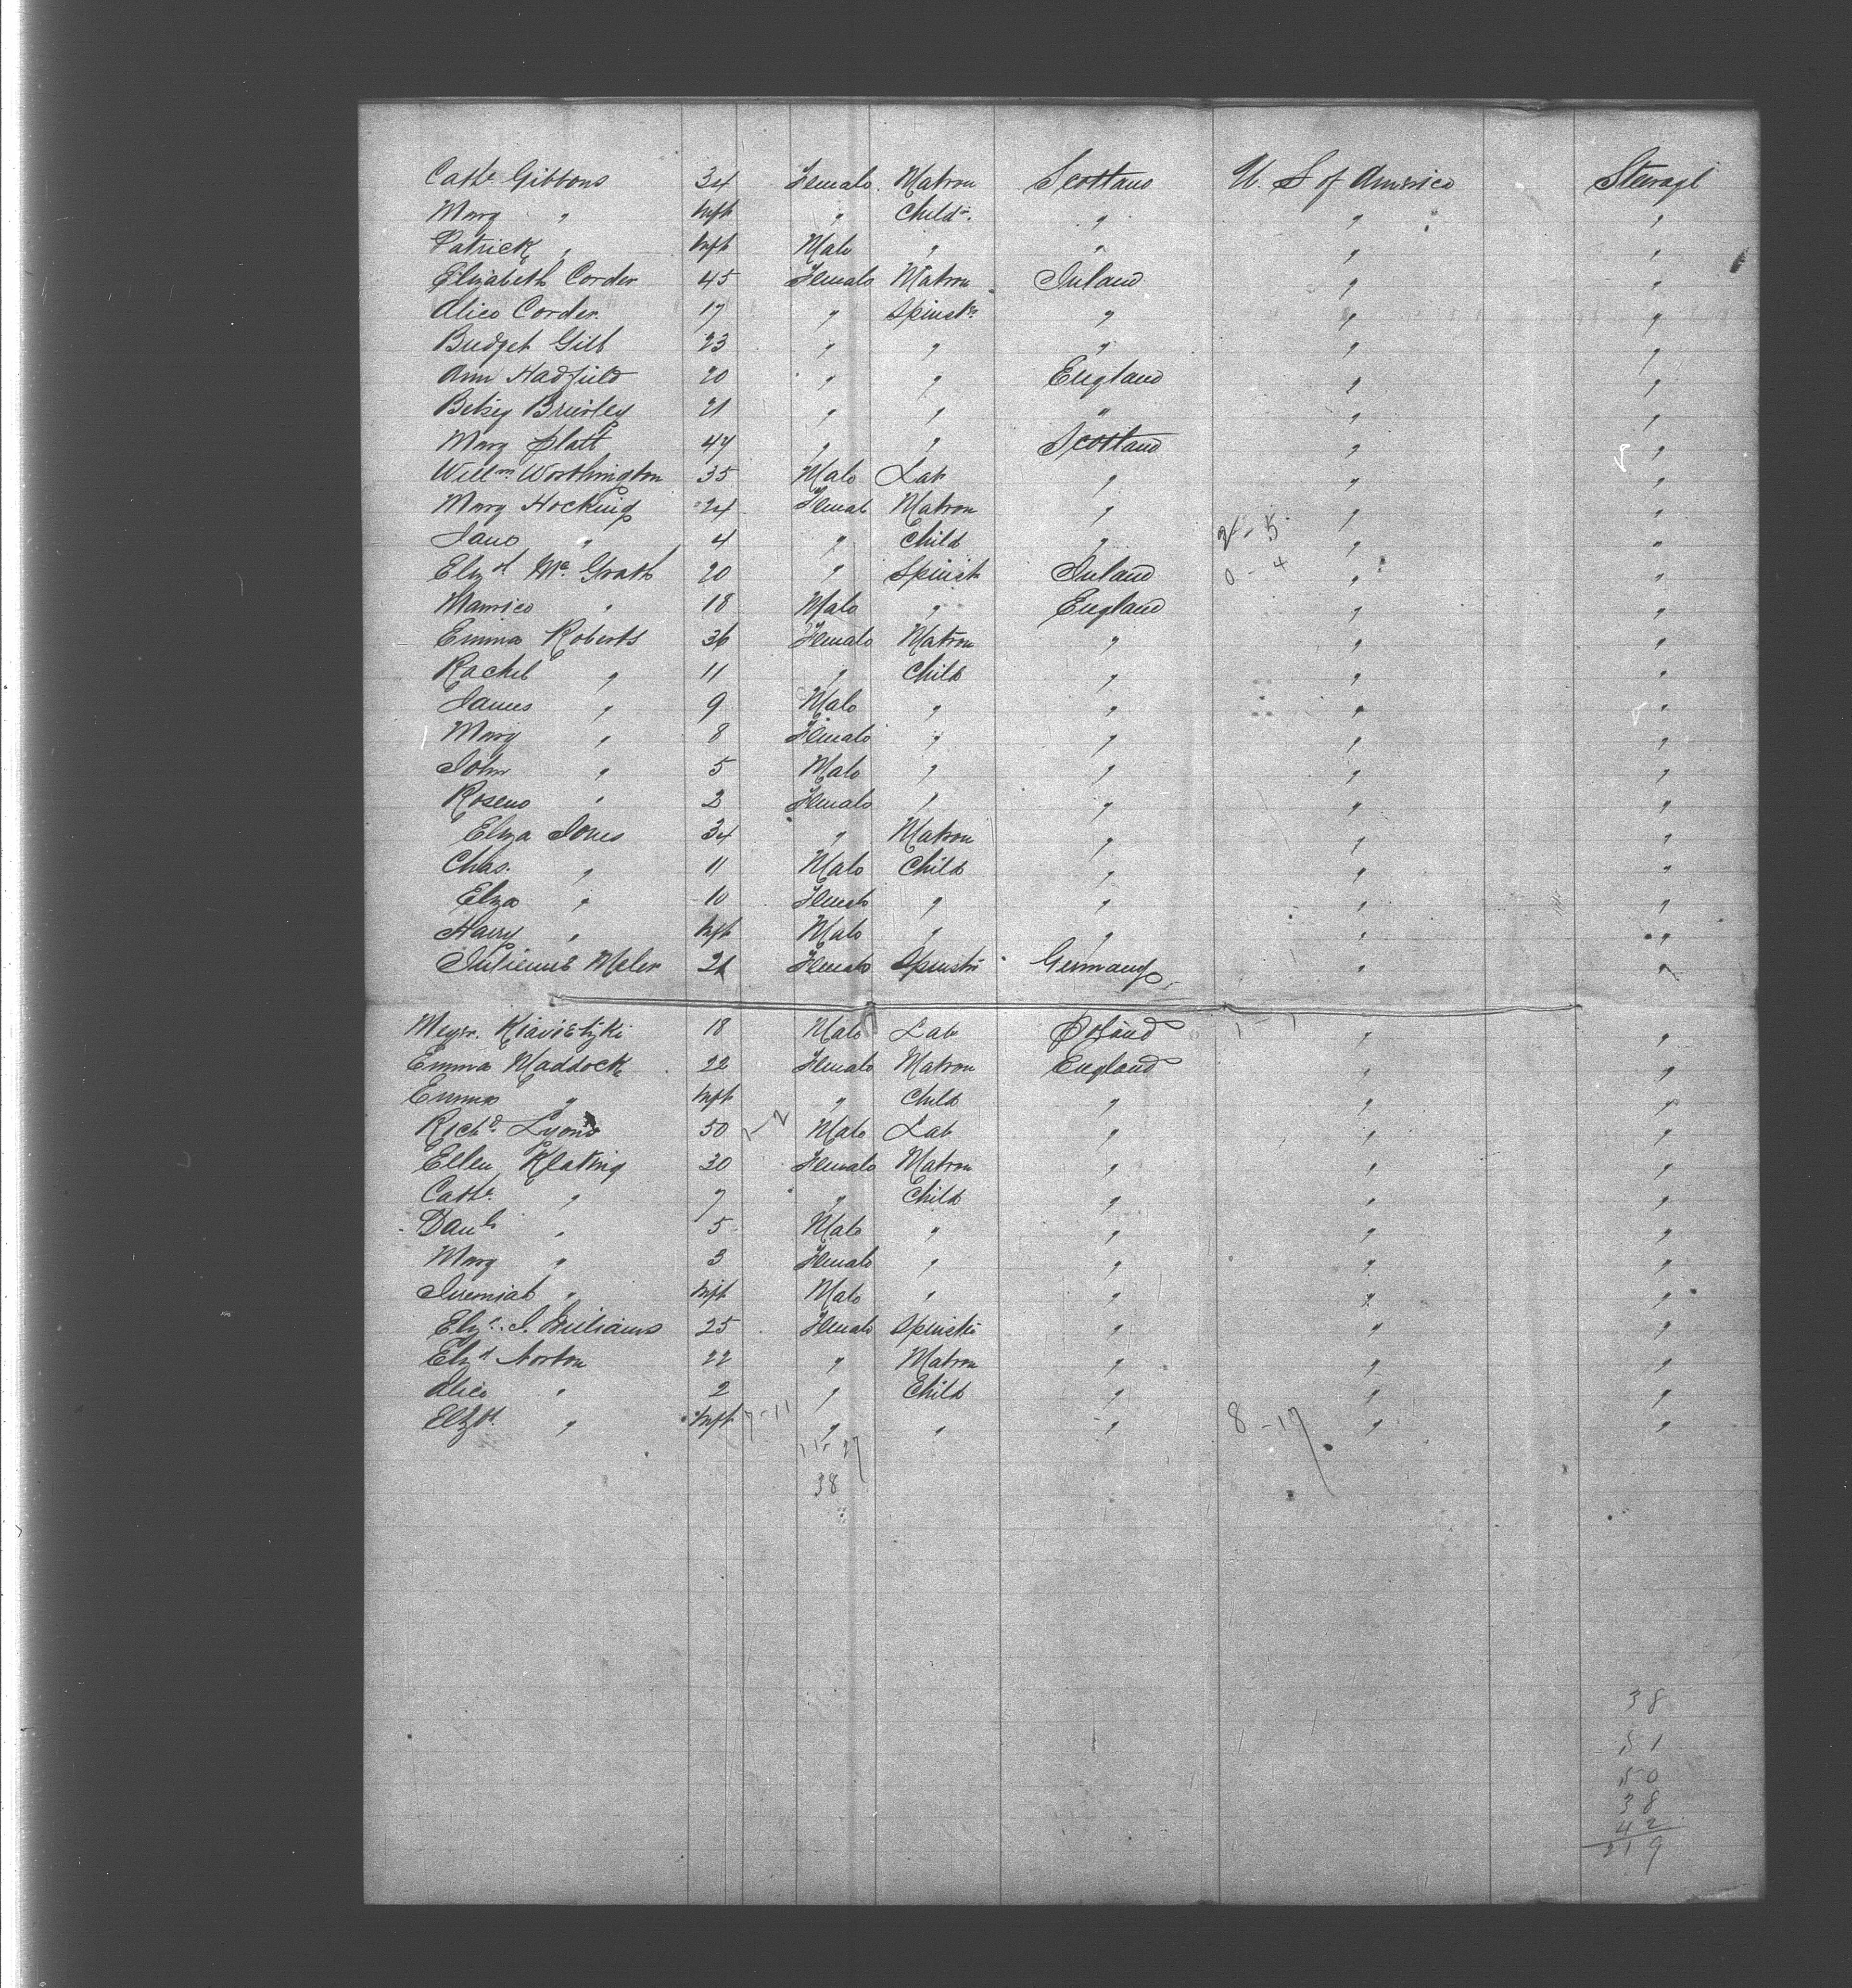 Cathe Gibbons 34 Female Matron Scotland U. S of America Steerage
Mary " Inft " Child " " "
Patrick " Inft Male " " " "
Elizabeth Corder 45 Female Matron Ireland " "
Alice Corder 17 " Spinstr " " "
Bridget Gill 23 " " " " "
Ann Hadfield 20 " " England " "
Betsey Brierley 21 " " " " "
Mary Platt 47 " " Scotland " "
Willm Worthington 35 Male Lab " " "
Mary Hocking 24 Female Matron " " "
Jane " 4 " Child " 2 - 5 " "
Elizth Mc Grath 20 " Spinst Ireland 0 - 4 " "
Maurice " 18 Male " England " "
Emma Roberts 36 Female Matron " " "
Rachel " 11 " Child " " "
James " 9 Male " " " "
Mary " 8 Female " " " "
John " 5 Male " " " "
Rosena " 2 Female " " " "
Eliza Jones 34 " Matron " " "
Chas. " 11 Male Child " " "
Eliza " 10 Female " " " "
Harry " Inft Male " " " "
21 Female Spinstr Germany " "
18 Male Lab Poland 1 - 1 " "
Emma Maddock 22 Female Matron England " "
Emma " Inft " Child " " "
Richd Lyons 50 1 - 2 Male Lab " " "
Ellen Keating 30 Female Matron " " "
Cathe " 7 " Child " " "
Danl " 5 Male " " " "
Mary " 3 Female " " " "
Jeremiah " Inft Male " " " "
Elizth J. Williams 25 Female Spinstr " " "
Elizth Norton 22 " Matron " " "
Alice " 2 " Child " " "
Elizth " Inft 7 - 11 " " " 8 - 17 " "
11 - 27
38
38
51
50
38
42
219